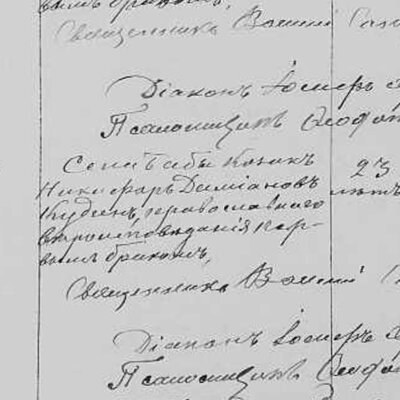 вымъ бракомъ,
Священникъ Василій
Діаконъ Іосифъ
Псаломщикъ Ѳеофа
Села Бабы Козакъ 23
Никифоръ Даміановъ лѣтъ
Кудинъ, православнаго
вѣроисповѣданія пер-
вымъ бракомъ,
Священникъ Василій
Діаконъ Іосифъ
Псаломщикъ Ѳеоф